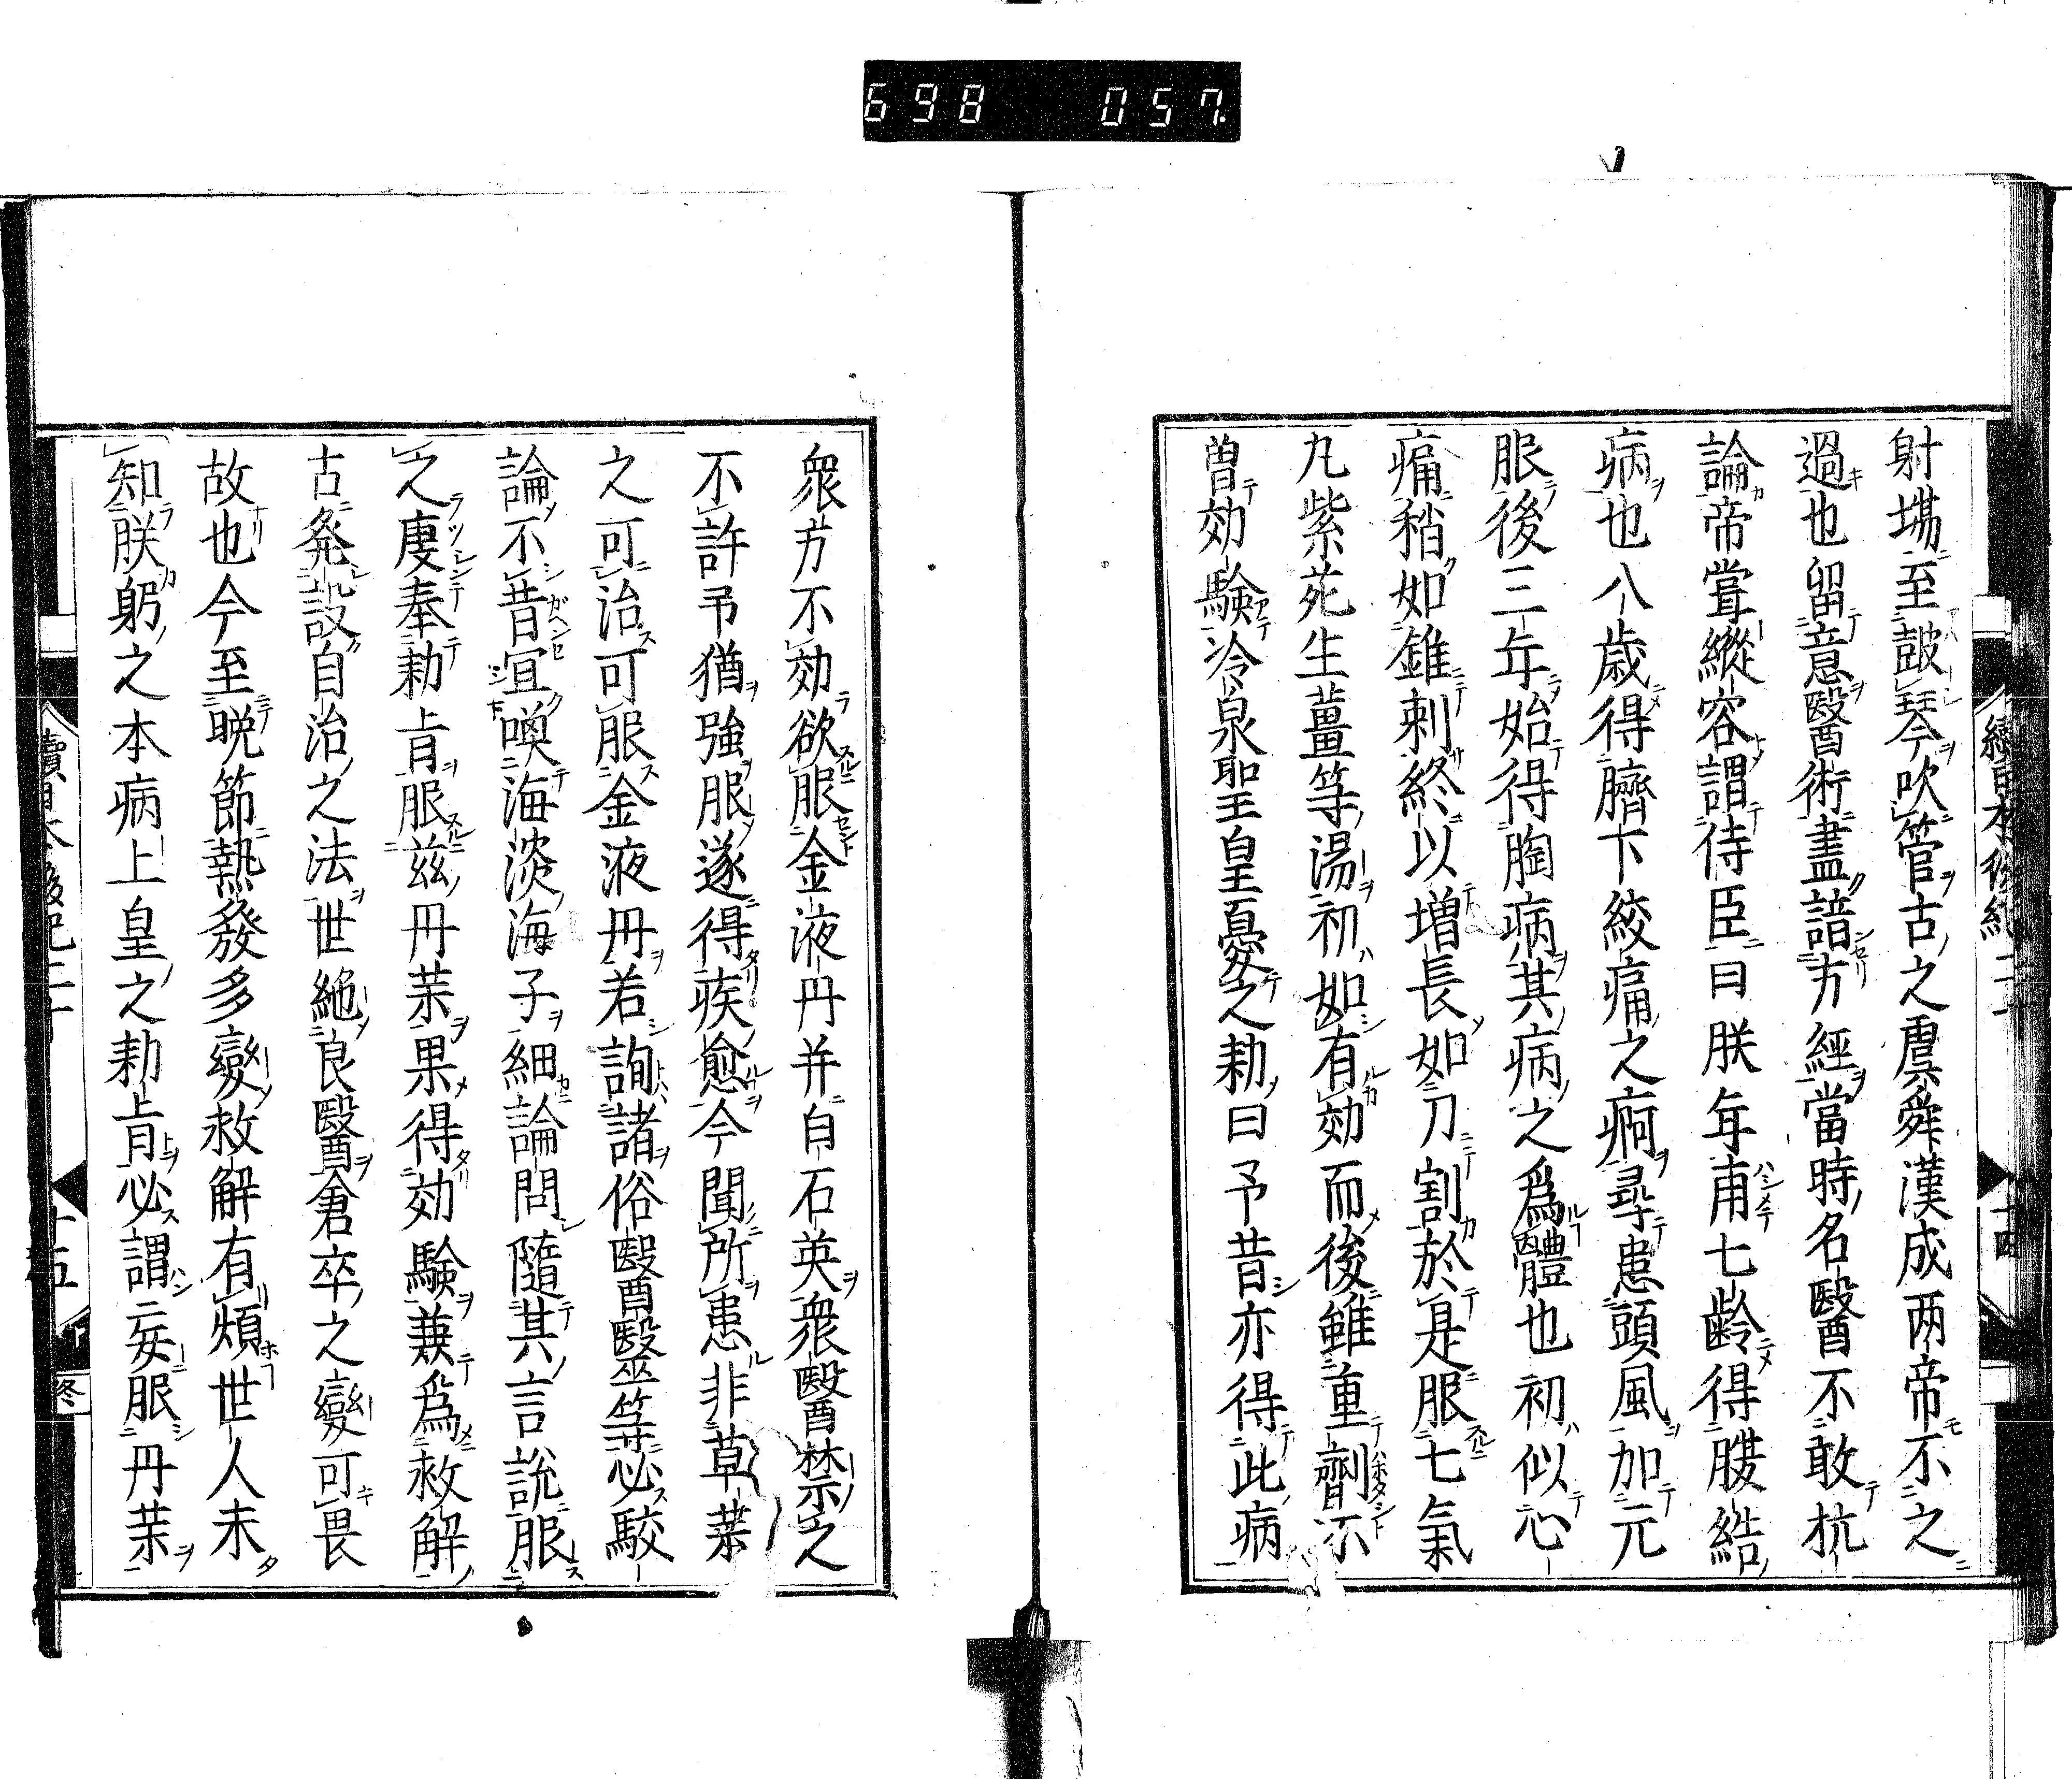 698 057
續日本後紀二十
十四
射塲至鼓琴吹管古之虞舜漢成两帝不之
過也留意醫術盡諳方經當時名醫不敢抗
論帝甞縱容謂侍臣曰朕年甫七齡得腹結
病也八歳得臍下絞痛之痾尋患頭風加元
服後三年始得胸病其病之爲軆也初似心
痛稍如錐刺終以増長如刀割於是服七氣
丸紫菀生薑等湯初如有効而後雖重劑不
曽効驗冷泉聖皇憂之勅曰予昔亦得此病
衆方不効欲服金液丹并白石英衆醫禁之
不許予猶強服遂得疾愈今聞所患非草藥
之可治可服金液丹若詢諸俗醫毉等必駮
論不昔宜喚海淡海子細論問隨其言說服
之虔奉勅旨服兹丹藥果得効驗兼爲救解
古発設自治之法世絶良醫倉卒之變可畏
故也今至晩節熱發多變救解有煩世人未
知朕躬之本病上皇之勅旨必謂妄服丹藥
續日本後紀二十
十五